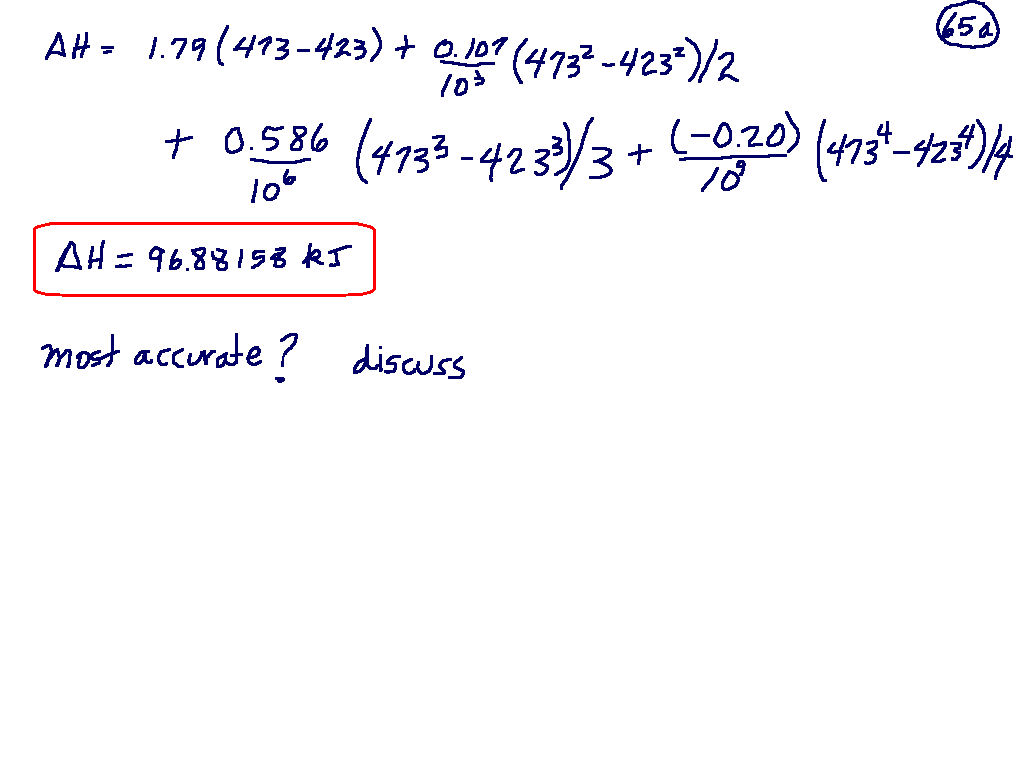 65a
ΔH = 1.79 (473-423) + 0.107/10³ (473² - 423²)/2
+ 0.586/10⁶ (473³ - 423³)/3 + (-0.20)/10⁹ (473⁴ - 423⁴)/4
ΔH = 96.88158 kJ
most accurate? discuss